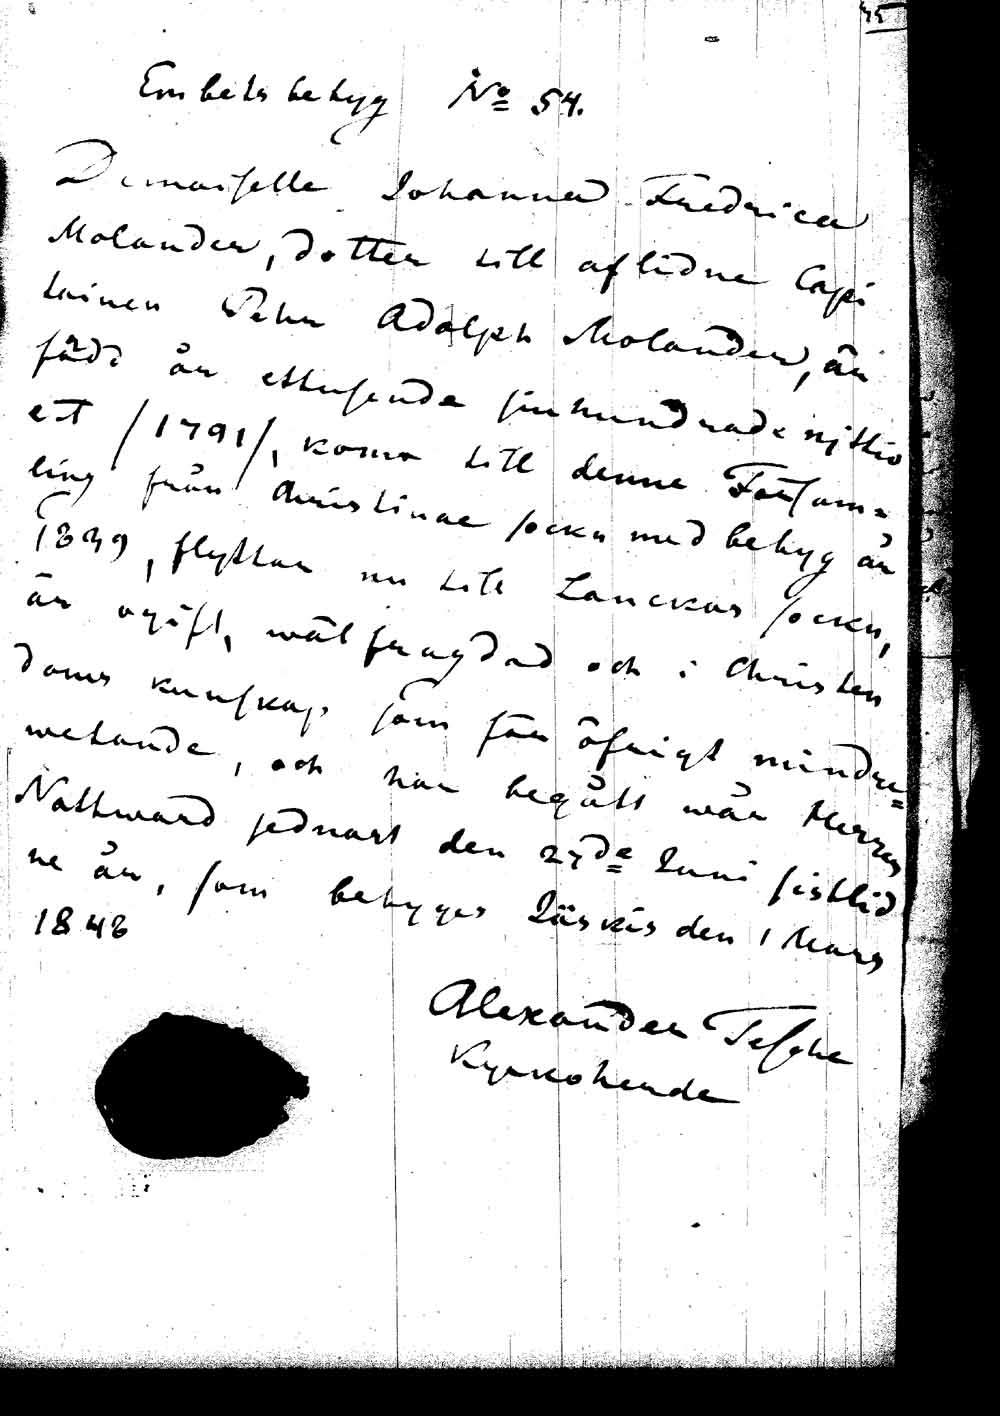 45
Embets betyg No 54.
Demoiselle Johanna Fredrica
Molander, dotter till aflidne Capi
tainen Pehr Adolph Molander, är
född år ettusende sjuhundrade nittio
ett /1791/, kom till denne Församling
ling från Christinae socken med betyg år
1839, flyttar nu till Lanckas socken,
är ogift, wälfrägdad och i Christen
doms kunskap som för öfrigt mindre=
wetande, och har begått wår Herres
Nattward sednast den 27de Juni sistlid
ne år, som betygas Jäskis den 1 Mars
1843
Alexander Tesche
Kyrkoherde